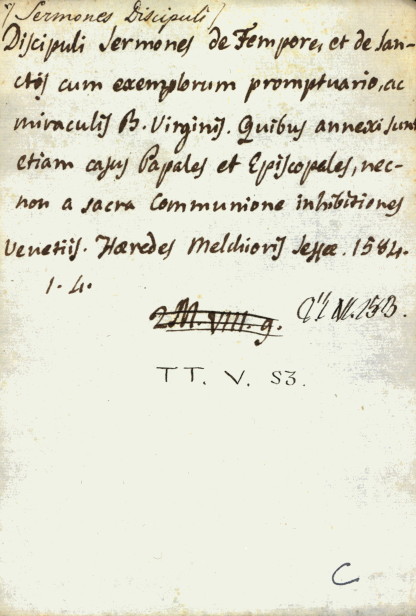 (Sermones Discipuli)
Discipuli Sermones de Tempore, et de San-
ctis cum exemplorum promptuario, ac
miraculis B. Virginis. Quibus annexi sunt
etiam casus Papales et Episcopales, nec-
non a sacra Communione inhibitiones
Venetiis. Hæredes Melchioris Sessæ. 1584.
1. 4.
2M. VIII. 9.
TT. V. S3.
C